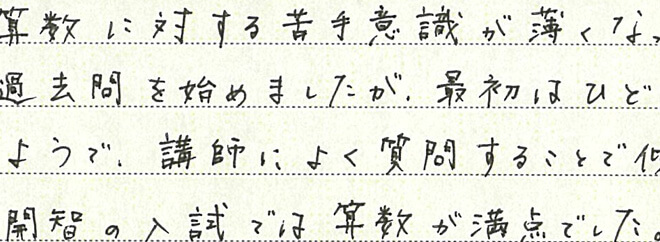 算数に対する苦手意識が薄くなっ
過去問を始めましたが、最初はひど
ようで、講師によく質問することで
開智の入試では算数が満点でした。